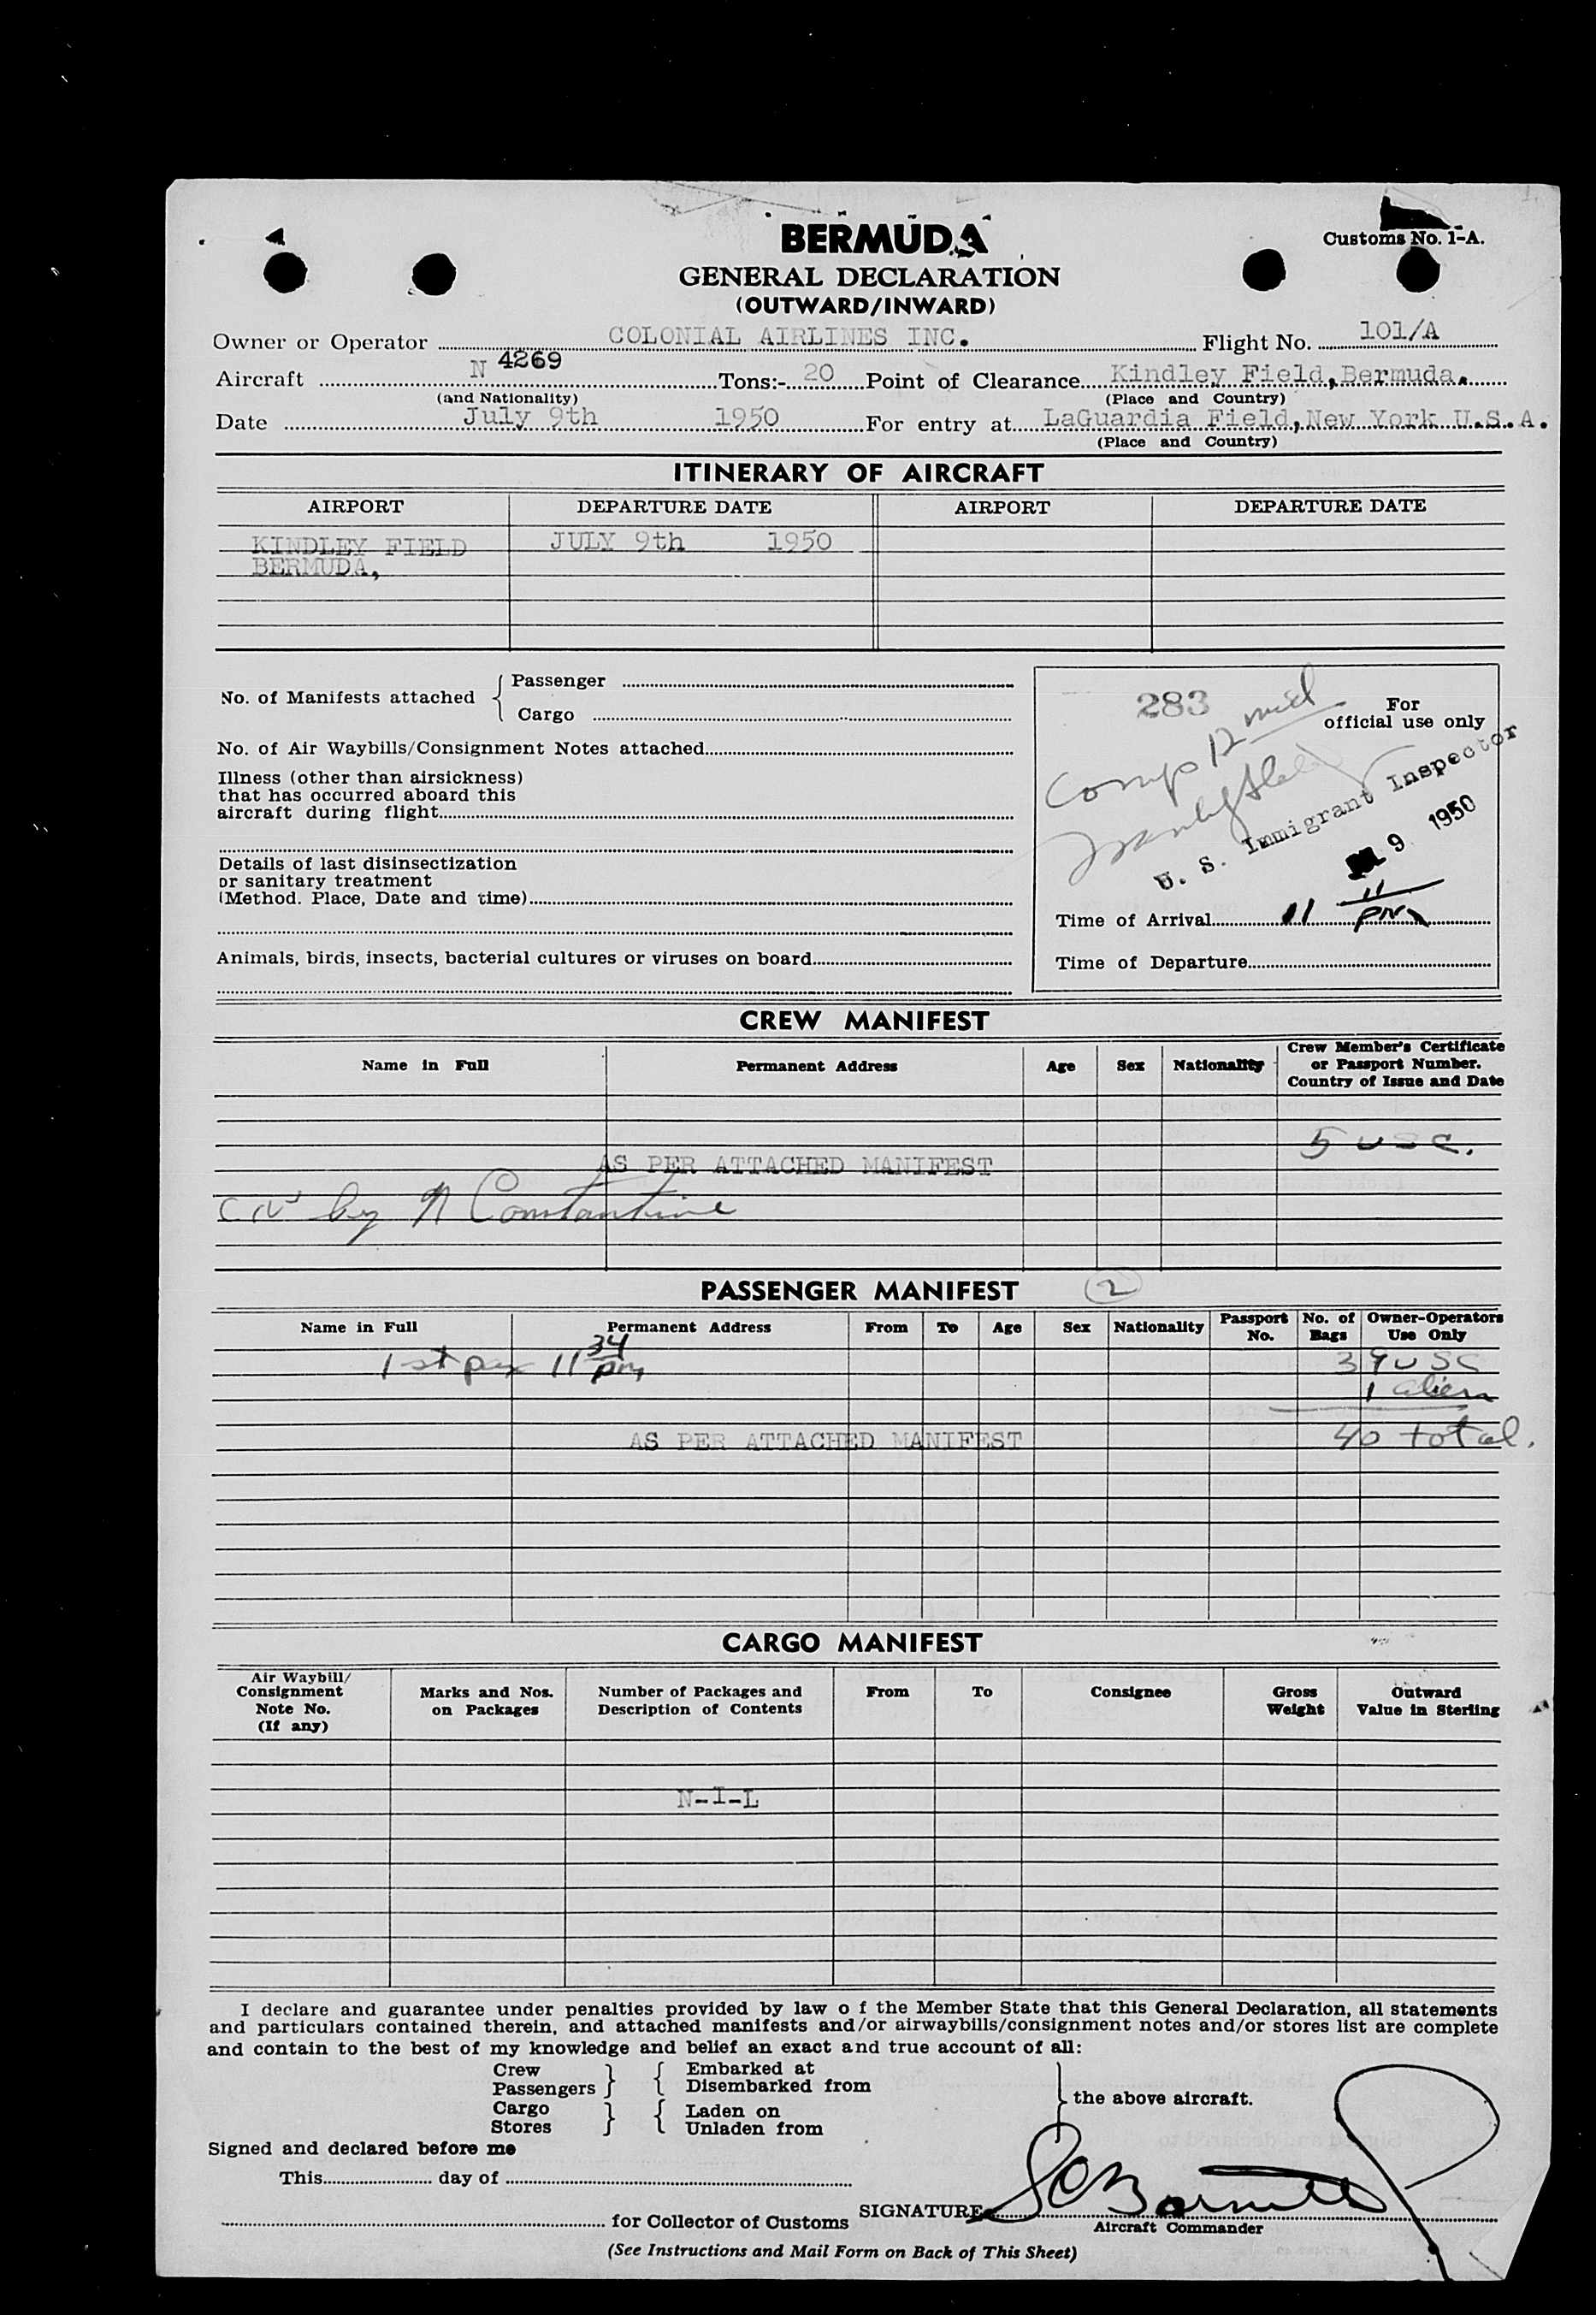 BERMUDA
Customs No. 1-A.
GENERAL DECLARATION
(OUTWARD/INWARD)
Owner or Operator COLONIAL AIRLINES INC. Flight No. 101/A
Aircraft N 4269 Tons:- 20 Point of Clearance Kindley Field, Bermuda.
(and Nationality) (Place and Country)
Date July 9th 1950 For entry at LaGuardia Field, New York U.S.A.
(Place and Country)
ITINERARY OF AIRCRAFT
AIRPORT DEPARTURE DATE AIRPORT DEPARTURE DATE
KINDLEY FIELD JULY 9th 1950
BERMUDA,
No. of Manifests attached { Passenger
Cargo
No. of Air Waybills/Consignment Notes attached
Illness (other than airsickness)
that has occurred aboard this
aircraft during flight
Details of last disinsectization
or sanitary treatment
(Method. Place, Date and time)
Animals, birds, insects, bacterial cultures or viruses on board
283
For
official use only
Comp 12 mid
U. S. Immigrant Inspector
9 1950
Time of Arrival 11 11 PM
Time of Departure
CREW MANIFEST
Name in Full Permanent Address Age Sex Nationality Crew Member's Certificate
or Passport Number.
Country of Issue and Date
5 USC.
AS PER ATTACHED MANIFEST
by N Constantine
PASSENGER MANIFEST 2
Name in Full Permanent Address From To Age Sex Nationality Passport No. No. of Bags Owner-Operators Use Only
1st pax 11 34 pm 39 USC
1 alien
AS PER ATTACHED MANIFEST 40 total.
CARGO MANIFEST
Air Waybill/
Consignment
Note No.
(If any)
Marks and Nos.
on Packages
Number of Packages and
Description of Contents
From To Consignee
Gross
Weight
Outward
Value in Sterling
N-I-L
I declare and guarantee under penalties provided by law o f the Member State that this General Declaration, all statements
and particulars contained therein, and attached manifests and/or airwaybills/consignment notes and/or stores list are complete
and contain to the best of my knowledge and belief an exact and true account of all:
Crew } { Embarked at
Passengers } { Disembarked from
} the above aircraft.
Cargo } { Laden on
Stores } { Unladen from
Signed and declared before me
This day of
for Collector of Customs SIGNATURE
Aircraft Commander
(See Instructions and Mail Form on Back of This Sheet)